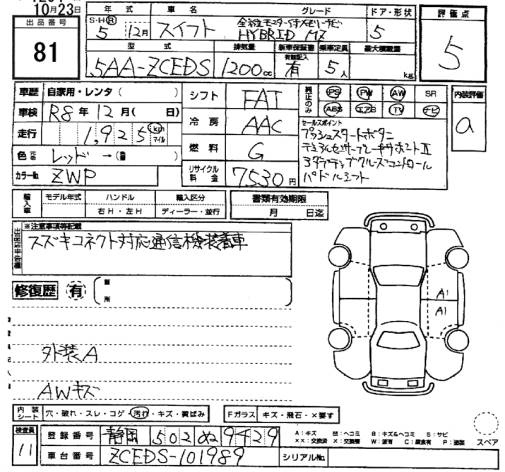 10月23日
出品番号
81
年式
車名
グレード
ドア・形状
評価点
S・H・R
5 12月
スイフト
全方位モニター付メモリーナビ
HYBRID MZ
5
5
型式
排気量
新車保証書
乗車定員
最大積載量
5AA-ZCEDS
1200cc
有
5人
kg
車歴
自家用・レンタ( )
車検
R8年12月( 日)
走行
1,925
km
マイル
色
レッド→( )
カラーNo.
ZWP
シフト
FAT
冷房
AAC
燃料
G
リサイクル料金
7530円
純正のみ
PS PW AW SR
ABS エアB TV ナビ
内装評価
a
セールスポイント
プッシュスタートボタン
デュアルセンサーブレーキサポートⅡ
アダプティブクルーズコントロール
パドルシフト
輸入車
モデル年式
ハンドル
輸入区分
右H・左H
ディーラー・並行
書類有効期限
月 日迄
※注意事項等記載
スズキコネクト対応通信機装着車
修復歴
有
箇所
外装A
AWキズ
A1
A1
内装シート
穴・破れ・スレ・コゲ・汚れ・キズ・黄ばみ
Fガラス
キズ・飛石・×要す
検査員
11
登録番号
静岡 502 ぬ 9429
車台番号
ZCEDS-101989
シリアルNo.
スペア